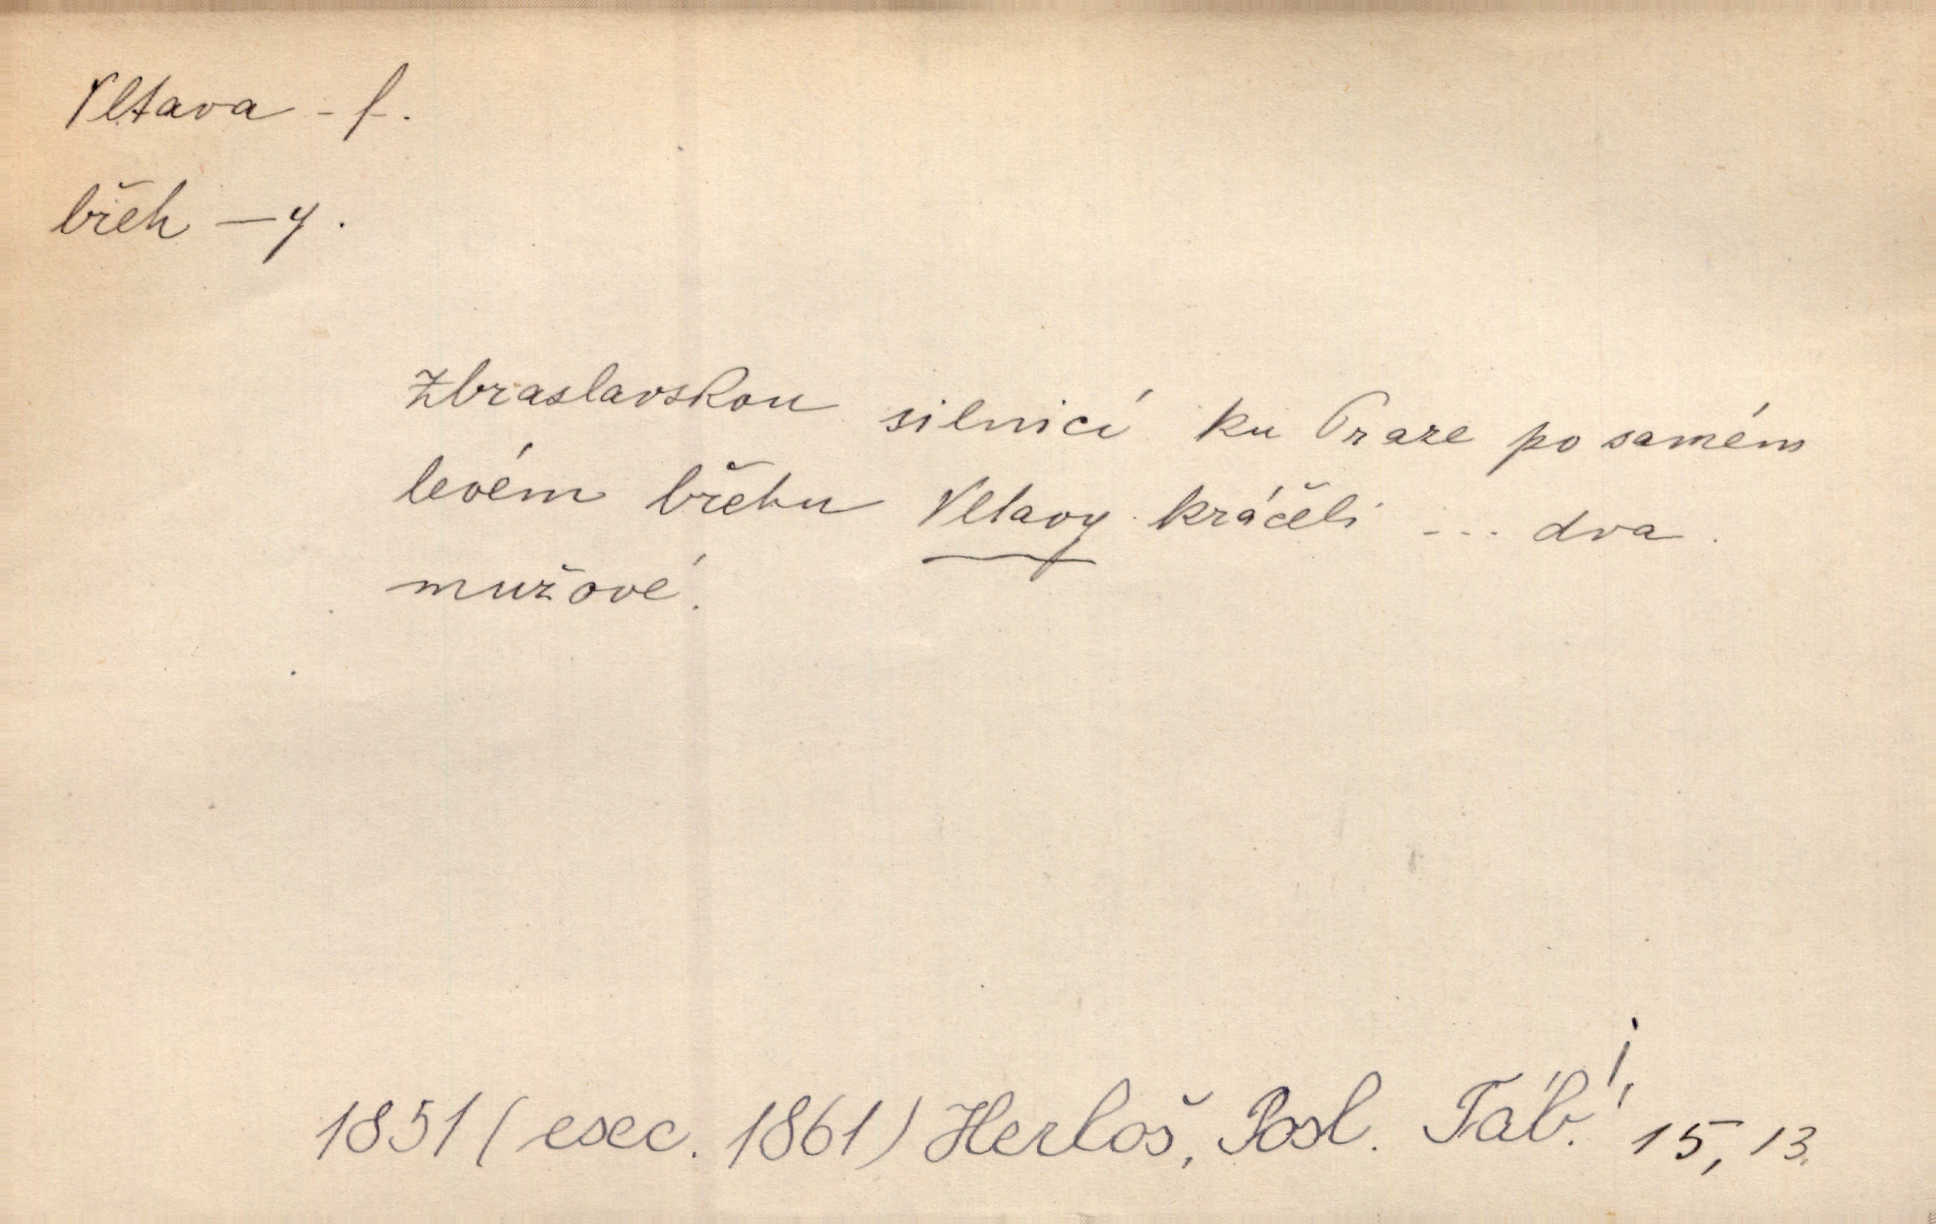 Vltava - f.
břeh - y.
Zbraslavskou silnicí ku Praze po samém
levém břehu Vltavy kráčeli ... dva
mužové.
1851 (exec. 1861) Herloš, Posl. Táb. I, 15, 13.